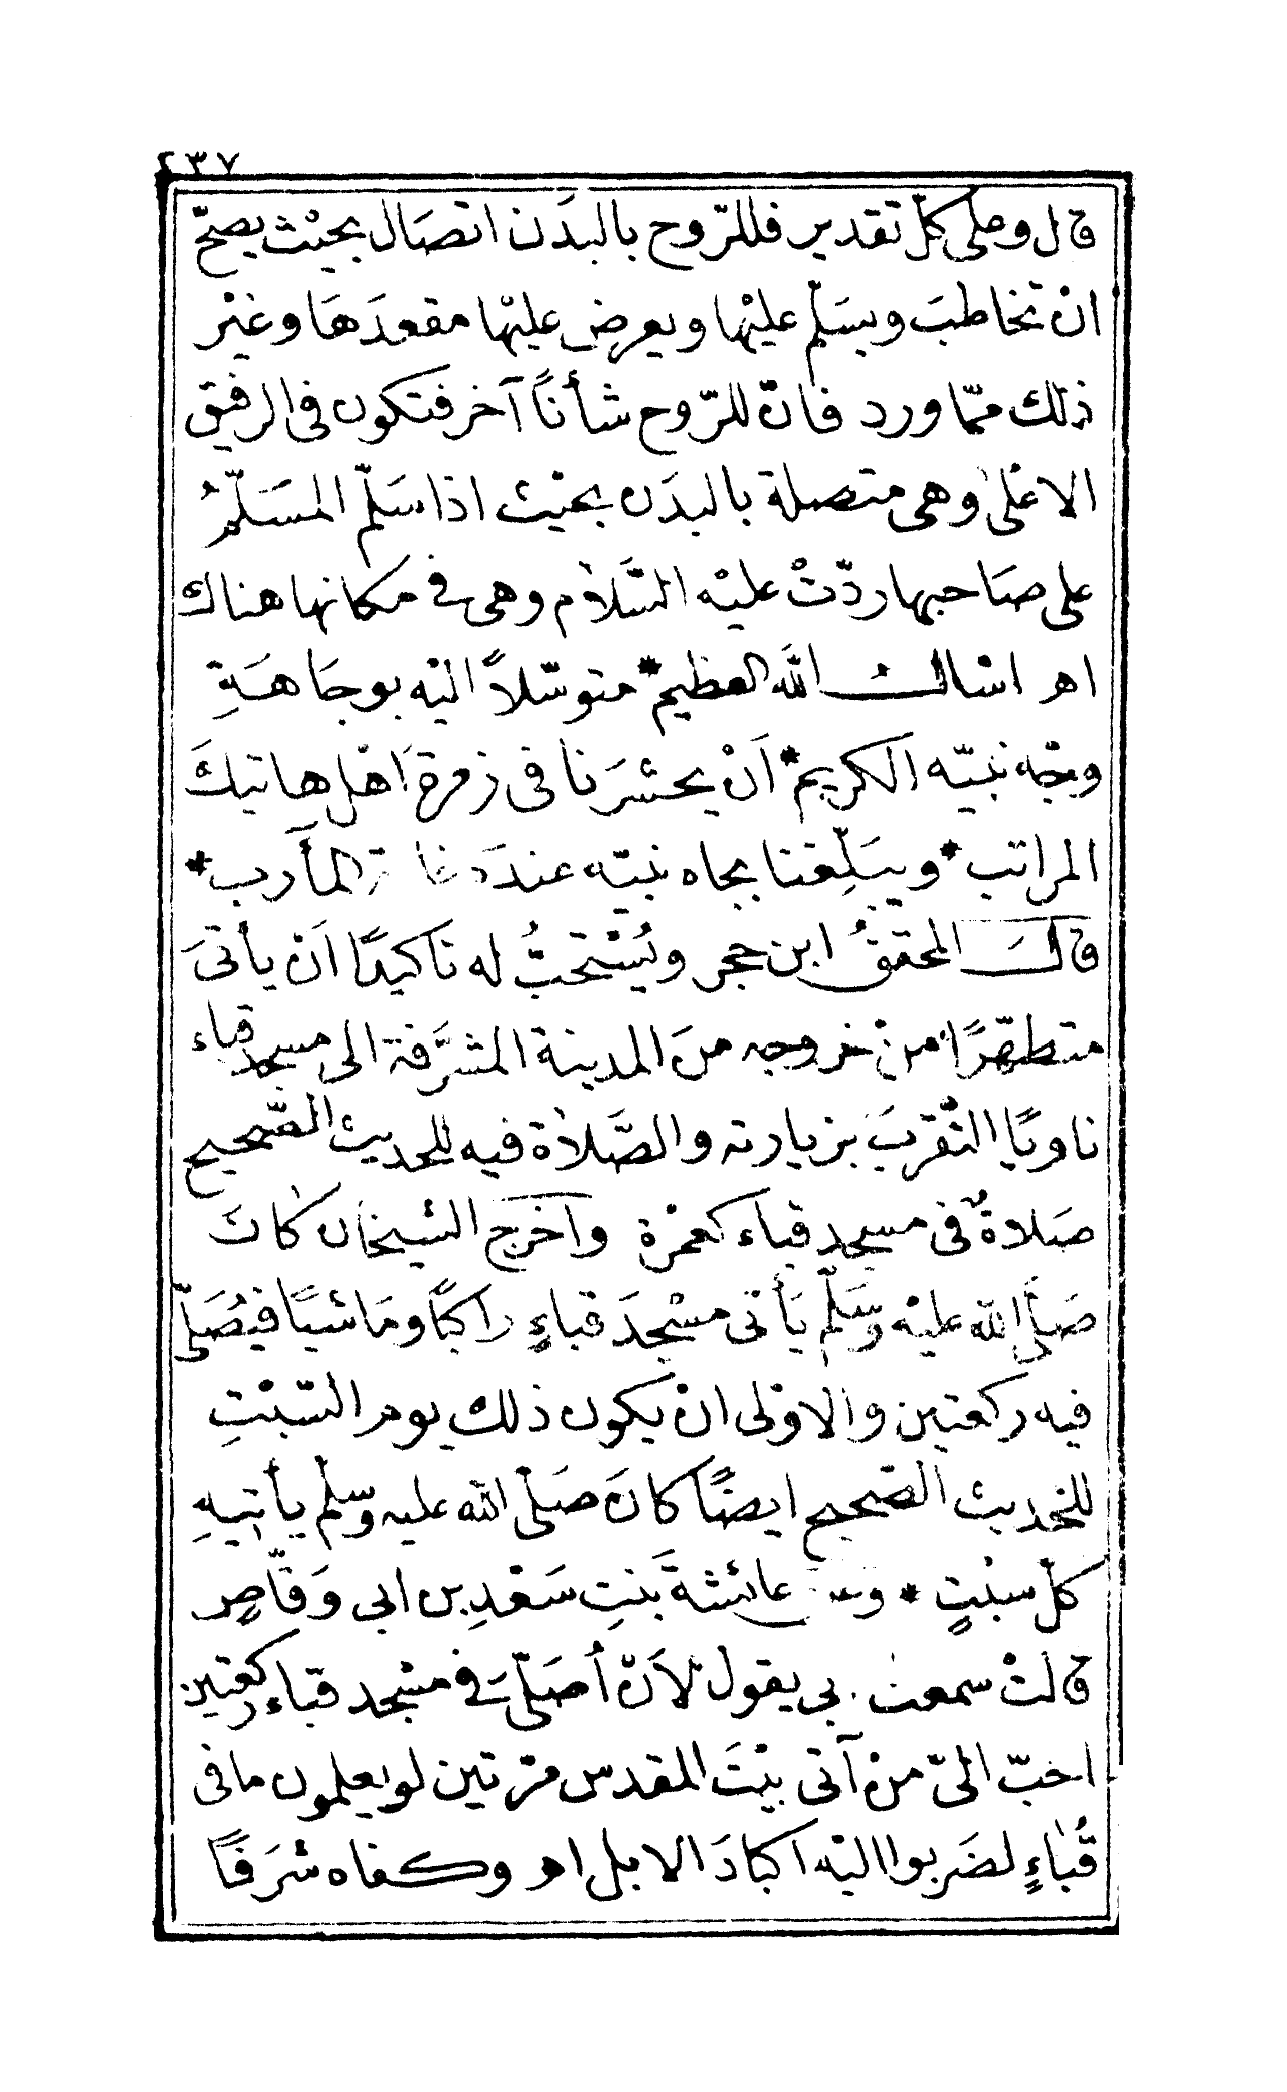 ٢٣٧
قال وعلى كلّ تقدير فللرّوح بالبدَن اتصَال بحيْث يصحّ
انْ تخاطبَ ويسَلّم عليْها ويعرض عليْها مقعدَهَا وغيْر
ذلك ممّا ورد فانّ للرّوح شأناً آخر فتكون فى الرفيق
الاعْلى وهى متصلة بالبدَن بحيْث اذا سَلّم المسَلّمُ
على صَاحبها ردّتْ عليْه السَّلام وهى فى مكانها هناك
اهـ اسْالُ الله العظيم * متوسّلاً اليْه بوجَاهَةِ
وجْه نبيّه الكريم * اَنْ يحشرَنا فى زمرة اَهْل هاتيكَ
المراتب * ويبَلِّغنا بجاه نبيّه عندَه المأرب *
قالَ المحققُ ابن حجر ويُسْتحبُّ له تاكيدًا اَنْ يأتىَ
متطهّرًا منْ خروجه منَ المدينة المشرَّفة الى مسجد قباء
ناويًا التّقربَ بزيارته والصَّلاة فيه للحديث الصَّحيح
صَلاةٌ فى مسجد قباء كعمْرة واَخرج الشيخان كانَ
صَلّى الله عليْه وسَلّم يَأتى مسْجدَ قباءٍ راكبًا ومَاشيًا فيُصَلّى
فيه ركعتين والاوْلى انْ يكون ذلك يوم السّبْتِ
للحديث الصّحيح ايضًا كانَ صَلّى الله عليه وسلّم يأتيهِ
كلّ سبْتٍ * وعن عائشةَ بنتِ سَعْدِ بن ابى وَقّاصٍ
قالتْ سمعت ابى يقول لاَنْ اُصَلّىَ فى مسْجد قباء ركعتين
احبّ الىّ منْ آتى بيْتَ المقدس مرّتين لو يعلمون ما فى
قُباءٍ لضَربوا اليْه اكبادَ الابل اهـ وكفاه شرَفًا